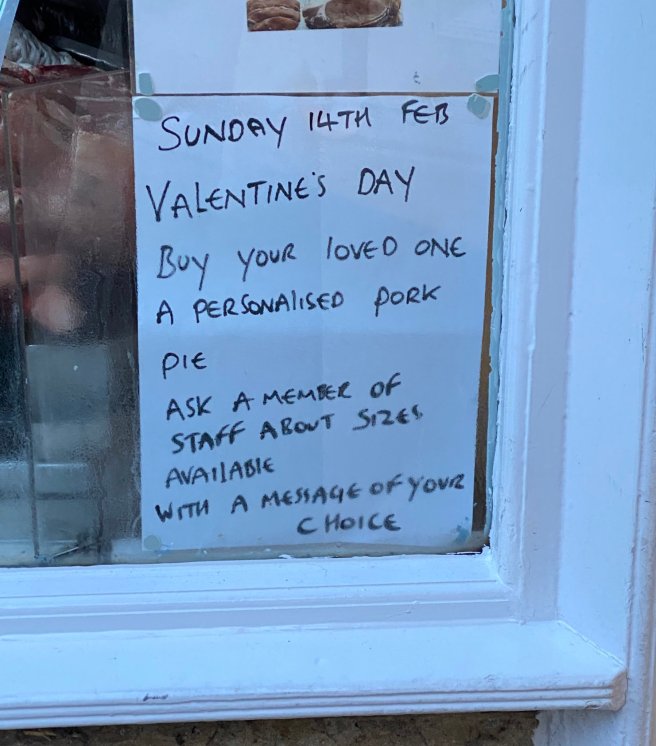 SUNDAY 14TH FEB
VALENTINE'S DAY
BUY YOUR LOVED ONE
A PERSONALISED PORK
PIE
ASK A MEMBER OF
STAFF ABOUT SIZES
AVAILABLE
WITH A MESSAGE OF YOUR
CHOICE